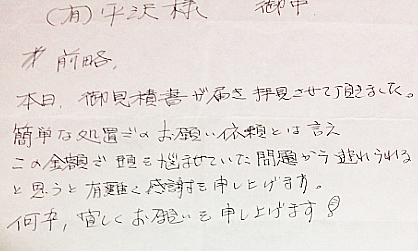 (有)平沢様 御中
前略、
本日、御見積書が届き拝見させて頂きました。
簡単な処置でのお願い依頼とは言え
この金額で頭を悩ませていた問題から逃れられる
と思うと有難く感謝を申し上げます。
何卒、宜しくお願いを申し上げます